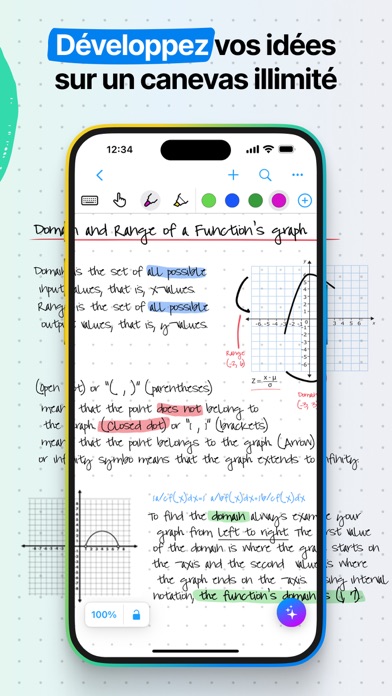 Développez vos idées
sur un canevas illimité
12:34
Domain and Range of a Function's graph
Domain is the set of all possible
input values, that is, x-values.
Range is the set of all possible
output values, that is, y-values.
Range
Z = x-μ
σ
(open dot) or "( , )" (parentheses)
mean that the point does not belong to
the graph. (closed dot) or "[ , ]" (brackets)
mean that the point belongs to the graph (Arrow)
or infinity symbo means that the graph extends to infinity
To find the domain always examine your
graph from Left to right. The first value
of the domain is where the graph starts on
the -axis and the second value is where
the graph ends on the -axis using interval
notation, the function's domain is
100%